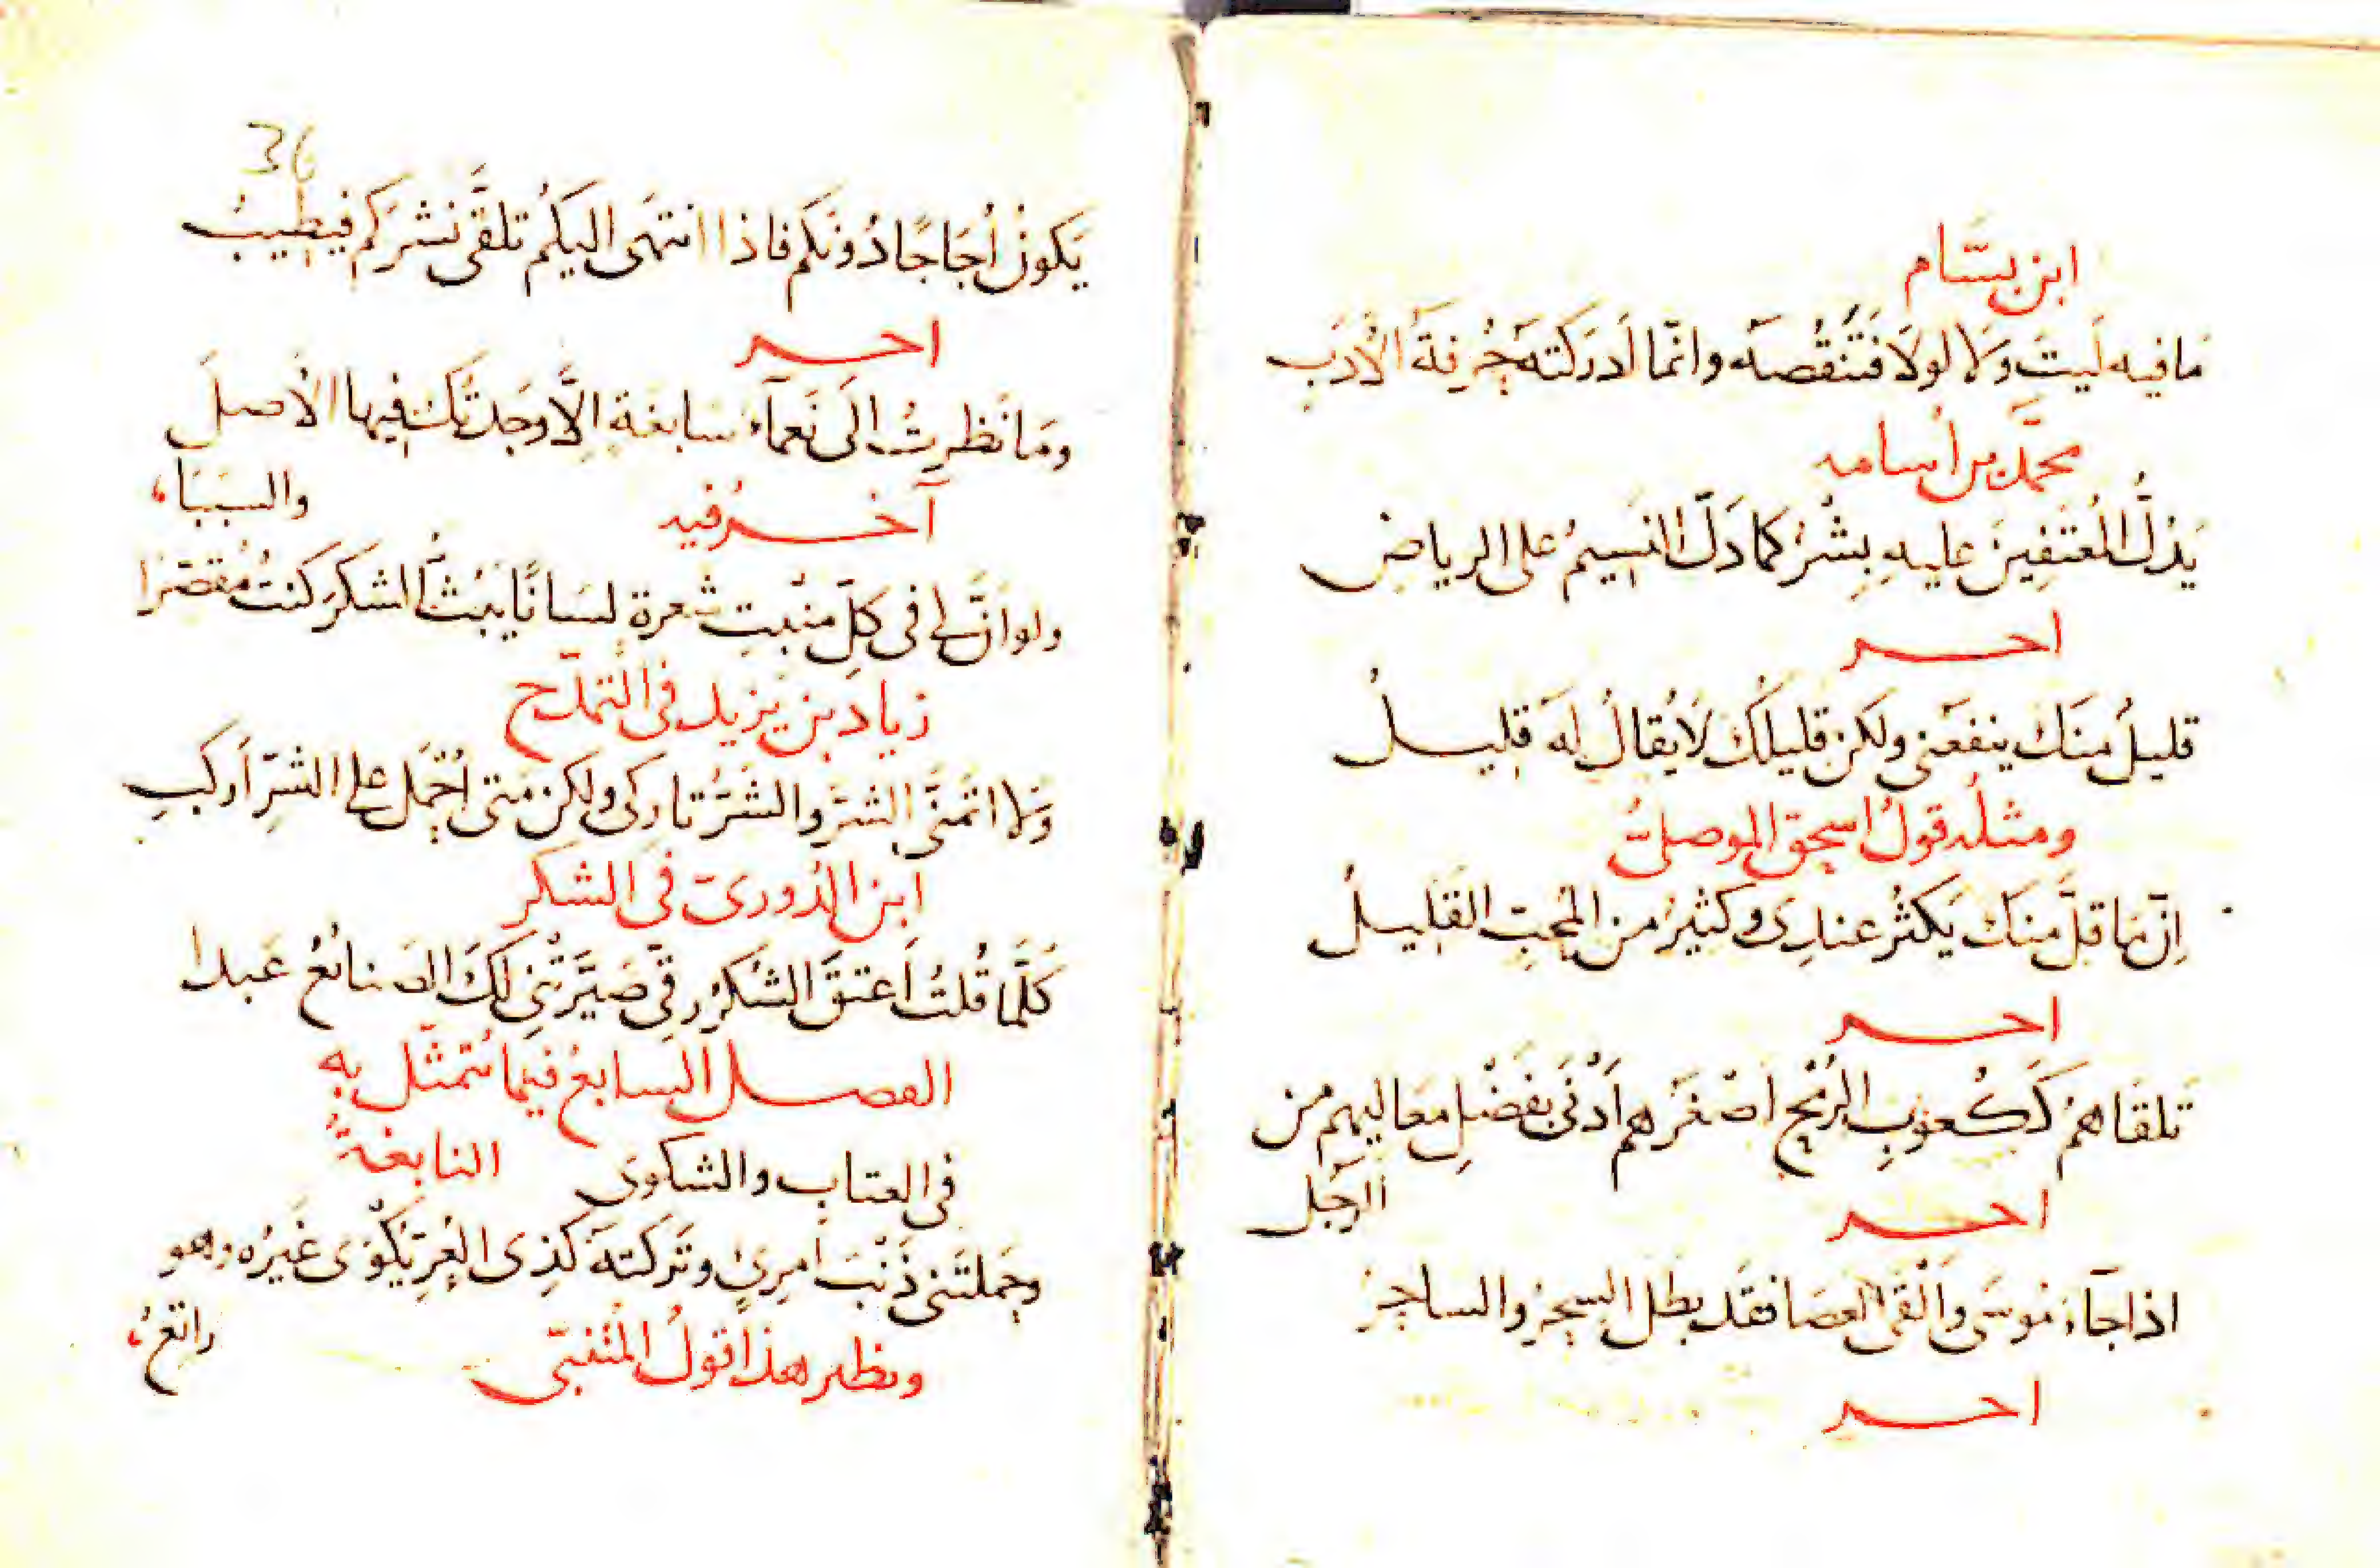 ابن بسّام
مَا فيه لَيتَ وَلا لولَا فَتَنقُصَهُ وانّما اَدرَكتهُ حُرفَةُ الأَدَبِ
محمَّد بن اُسامه
يَدُلُّ المُعتَفِينَ عليهِ بِشْرٌ كما دَلّ النسيمُ على الرياضِ
اخر
قليلٌ منَك ينفعَنى ولكن قليلُكَ لَا يُقالُ لهَ قليلُ
ومثلُه قولُ اسحق الموصلىّ
اِنّ مَا قلَّ منكَ يَكثُر عندِى وكثيرٌ من المُحِبّ القَليلُ
اخر
تَلقَاهمُ كَكُعوبِ الرُمْحِ اصْغَرهم اَدْنَى بفَضْلِ مَعَاليهم من
الرجُل
اخر
اذا جآءَ مُوسَى وَاَلْقَى العَصَا فقَد بطل السِحرُ والساحِرُ
اخر
36
يَكونُ اُجَاجًا دُونَكم فاذا انتهَى اليكُم تلَقَّى نشرَكم فيطيبُ
اخر
ومَا نَظرتُ الَى نَعمآءَ سَابغةٍ الَّا وَجَدتُّكَ فيها الأَصلَ
والسَبَبَا،
آخرُ فيه
ولو انَّ لى فى كلّ منبت شعرة لسَانًا يبُثُّ الشكرَ كنتُ مُقصّرَا
زياد بن يزيد فى التمدّح
وَلا اتمَنَّى الشرّ والشَرُّ تاركى ولكن متى اُحْمَل على الشرّ اَركَبِ
ابن الدُورىّ فى الشكر
كلَّما قُلتُ اَعتقَ الشكرُ رِقّى صَيَّرَتْنِى لَكَ الصَنائعُ عَبدا
الفصل السابعُ فيما يُتمثّل به
فى العتابِ والشكوى النابغةُ
وحَملتَنى ذَنْبَ اَمرِئٍ وتَركتهَ كَذِى العُرِّ يُكْوَى غَيرُه وهو
راتعُ،
ونظير هذا قولُ المُتنبّى